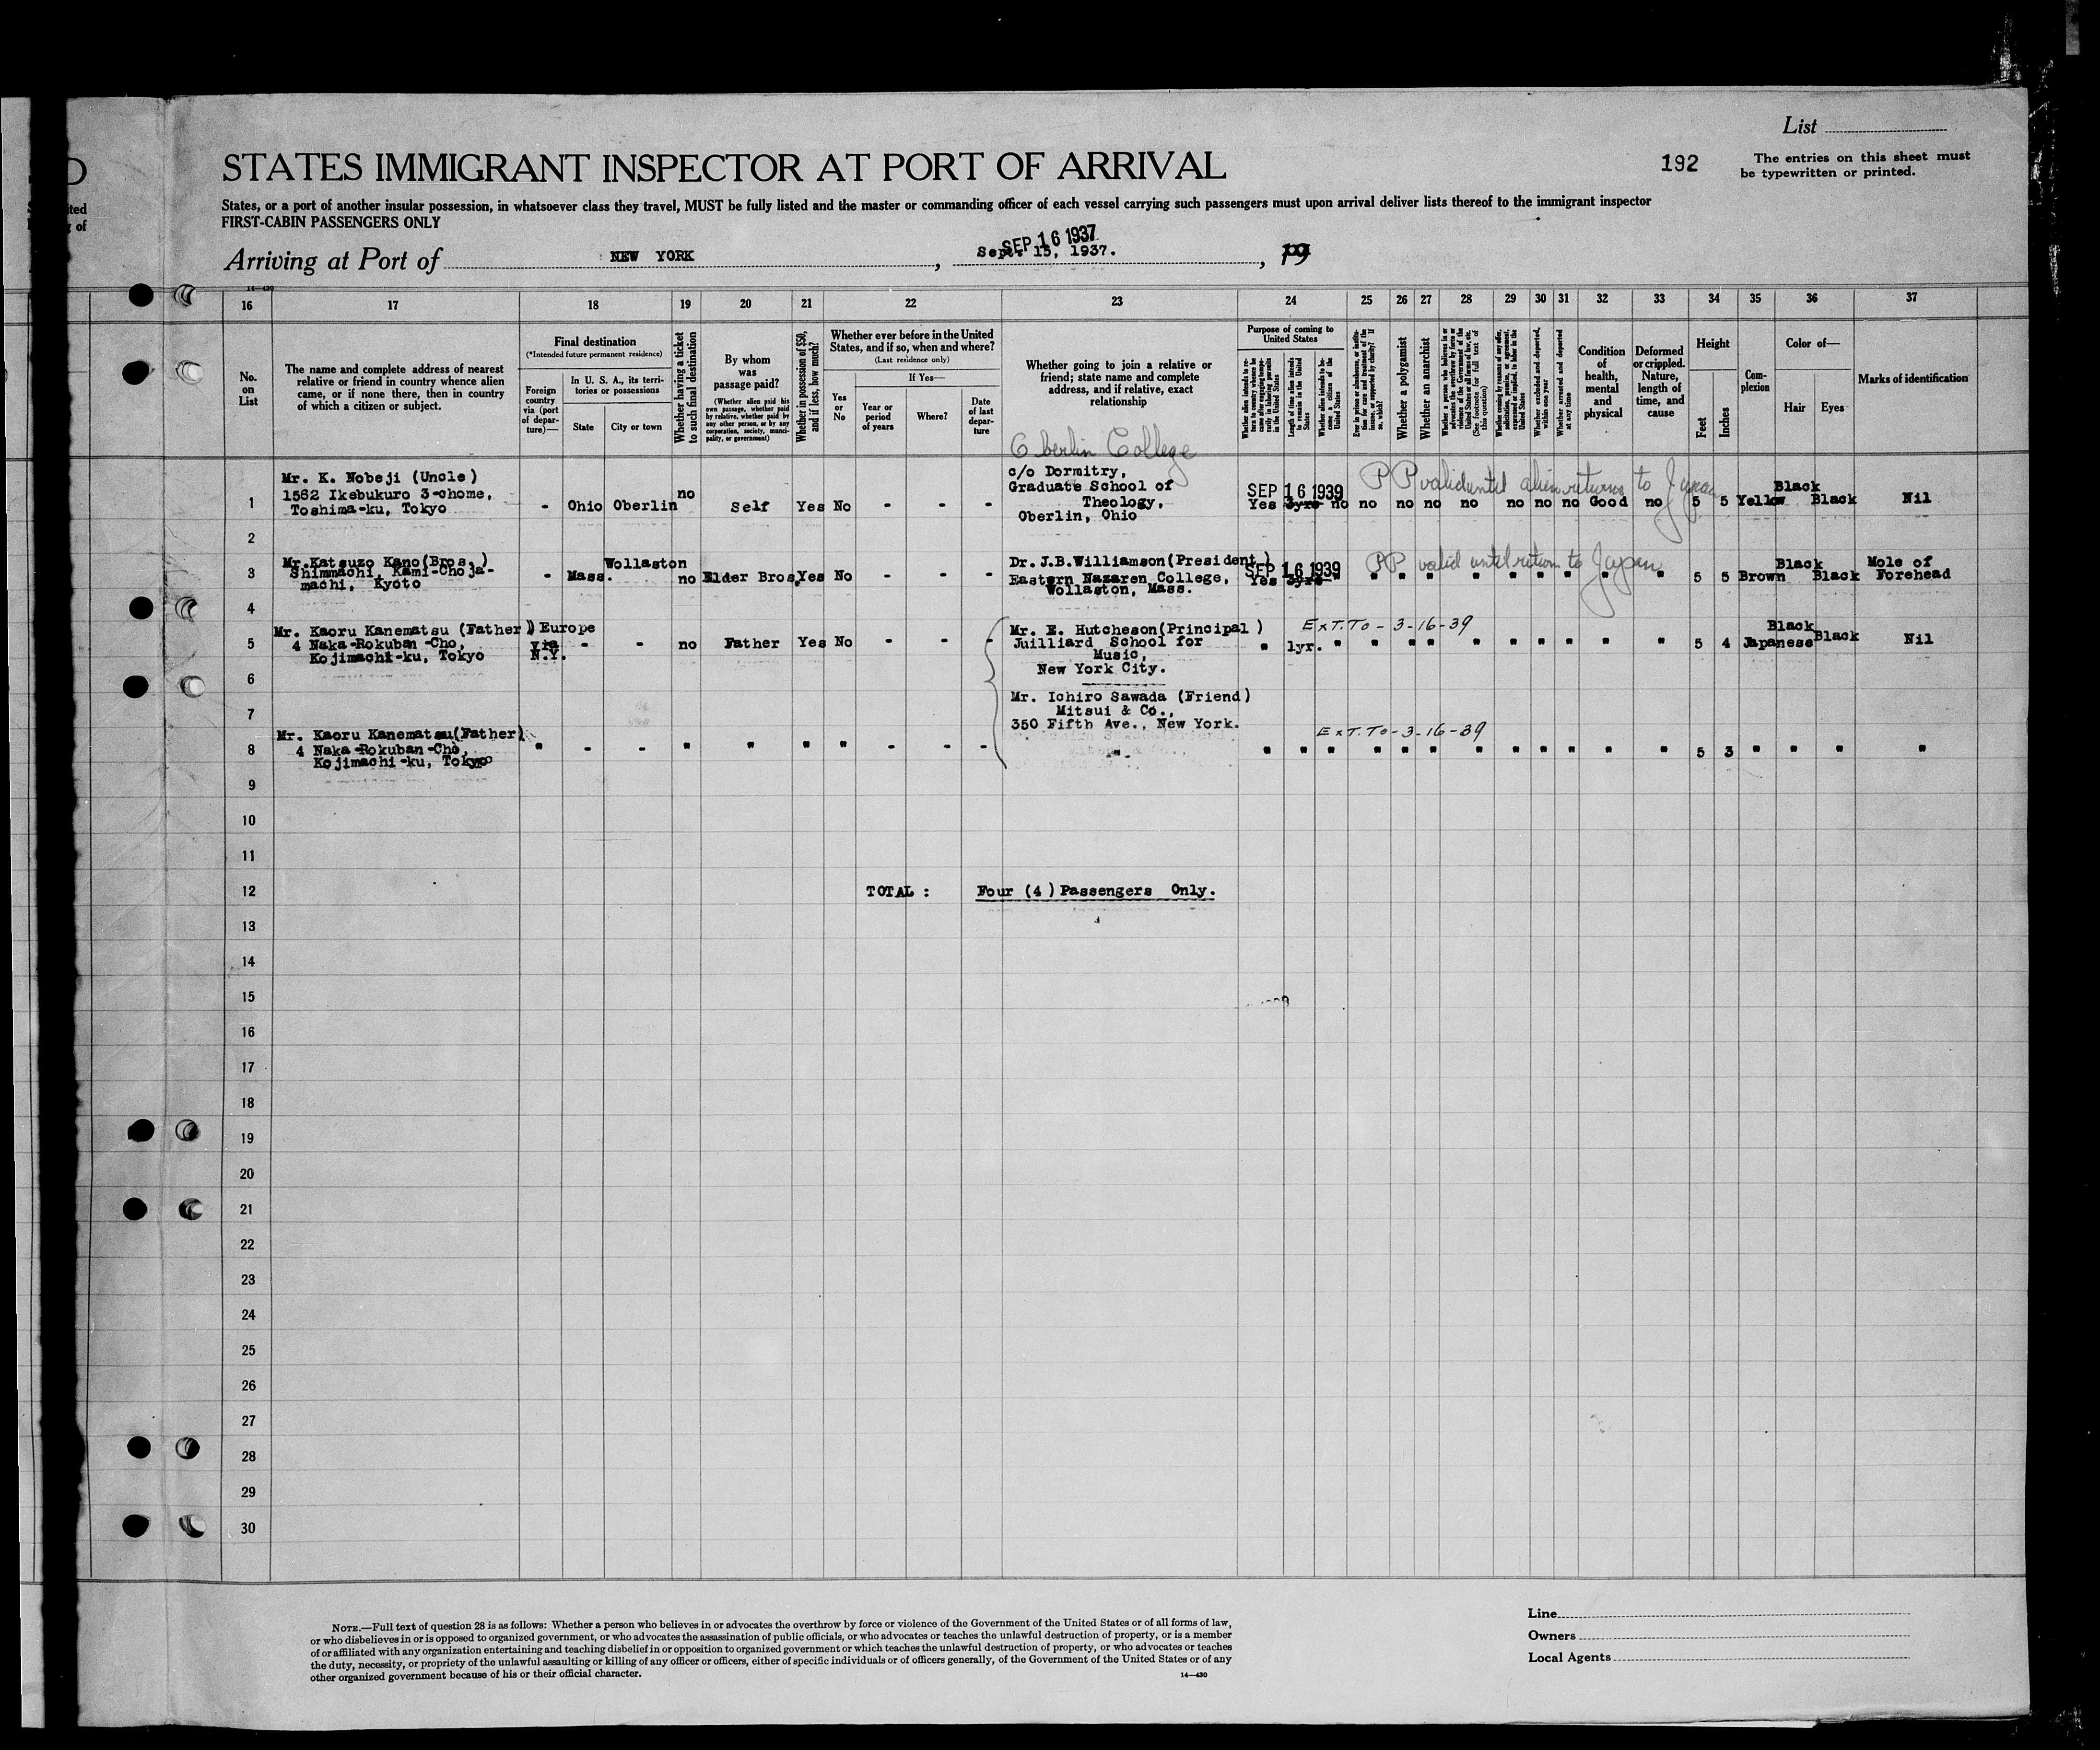 List
STATES IMMIGRANT INSPECTOR AT PORT OF ARRIVAL
192
The entries on this sheet must
be typewritten or printed.
States, or a port of another insular possession, in whatsoever class they travel, MUST be fully listed and the master or commanding officer of each vessel carrying such passengers must upon arrival deliver lists thereof to the immigrant inspector
FIRST-CABIN PASSENGERS ONLY
Arriving at Port of NEW YORK, Sept. 15, 1937. , 19
SEP 16 1937
14—430
16 17 18 19 20 21 22 23 24 25 26 27 28 29 30 31 32 33 34 35 36 37
No.
on
List
The name and complete address of nearest
relative or friend in country whence alien
came, or if none there, then in country
of which a citizen or subject.
Final destination
(*Intended future permanent residence)
Foreign
country
via (port
of depar-
ture)—
In U. S. A., its terri-
tories or possessions
State
City or town
Whether having a ticket
to such final destination
By whom
was
passage paid?
(Whether alien paid his
own passage, whether paid
by relative, whether paid by
any other person, or by any
corporation, society, munici-
pality, or government)
Whether in possession of $50,
and if less, how much?
Whether ever before in the United
States, and if so, when and where?
(Last residence only)
Yes
or
No
If Yes—
Year or
period
of years
Where?
Date
of last
depar-
ture
Whether going to join a relative or
friend; state name and complete
address, and if relative, exact
relationship
Purpose of coming to
United States
Length of time alien intends
to remain in the United
States
Whether alien intends to be-
come a citizen of the
United States
Whether a polygamist
Whether an anarchist
Whether excluded and deported,
within one year
Whether arrested and deported
at any time
Condition
of
health,
mental
and
physical
Deformed
or crippled.
Nature,
length of
time, and
cause
Height
Feet
Inches
Com-
plexion
Color of—
Hair
Eyes
Marks of identification
Oberlin College
1
Mr. K. Nobeji (Uncle)
1562 Ikebukuro 3-chome,
Toshima-ku, Tokyo
- Ohio Oberlin no Self Yes No - - -
c/o Dormitry,
Graduate School of
Theology,
Oberlin, Ohio
SEP 16 1939
Yes 3yrs no no no no no no no no Good no 5 5 Yellow Black Black Nil
PP valid until alien returns to Japan
2
3
Mr. Katsuzo Kano (Bros.)
Shimmachi, Kami-Choja-
machi, Kyoto
- Mass. Wollaston no Elder Bros. Yes No - - -
Dr. J.B. Williamson (President)
Eastern Nazaren College,
Wollaston, Mass.
SEP 16 1939
Yes 3yrs " " " " " " " " " " 5 5 Brown Black Black Mole of
Forehead
PP valid until return to Japan
4
5
Mr. Kaoru Kanematsu (Father)
4 Naka-Rokuban-Cho,
Kojimachi-ku, Tokyo
Europe
via
N.Y.
- - no Father Yes No - - -
Mr. E. Hutcheson (Principal)
Juilliard School for
Music,
New York City.
EXT. TO - 3-16-39
" 1yr. " " " " " " " " " " 5 4 Japanese Black Black Nil
6
Mr. Ichiro Sawada (Friend)
Mitsui & Co.,
350 Fifth Ave., New York.
7
8
Mr. Kaoru Kanematsu (Father)
4 Naka-Rokuban-Cho,
Kojimachi-ku, Tokyo
" - - " " " " - - - "
EXT. TO - 3-16-39
" " " " " " " " " " " " 5 3 " " " "
9
10
11
12
TOTAL : Four (4) Passengers Only.
13
14
15
16
17
18
19
20
21
22
23
24
25
26
27
28
29
30
NOTE.—Full text of question 28 is as follows: Whether a person who believes in or advocates the overthrow by force or violence of the Government of the United States or of all forms of law,
or who disbelieves in or is opposed to organized government, or who advocates the assassination of public officials, or who advocates or teaches the unlawful destruction of property, or is a member
of or affiliated with any organization entertaining and teaching disbelief in or opposition to organized government or which teaches the unlawful destruction of property, or who advocates or teaches
the duty, necessity, or propriety of the unlawful assaulting or killing of any officer or officers, either of specific individuals or of officers generally, of the Government of the United States or of any
other organized government because of his or their official character.
14—430
Line
Owners
Local Agents